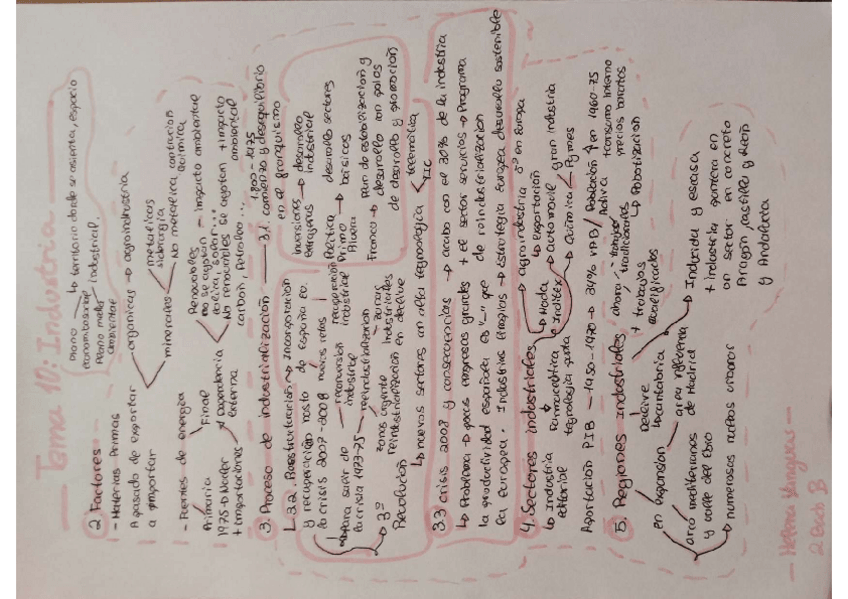 Tema 10: Industria
Plano económico social
Plano medio ambiental
territorio donde se asienta, espacio industrial.
2. Factores
- Materias Primas
A pasado de exportar
a importar
organicas → agroindustria
minerales
metalicos siderurgia
No metalica, contrucion
Química
- Fuentes de energía
Primaria
Final
1975 → Nuclear
+ importaciones
Dependencia externa
Renovables - impacto ambiental
no se agotan
eolica, solar...
No renovables se agotan + impacto ambiental
carbón, Petroleo...
3. Proceso de industrialización
3.1. comienzo y desequilibrio 1800-1975
en el franquismo
Inversiones extrangeras → desarrollo industrial
Política
Primo Rivera → desarrollo sectores
básicos
Franco → Plan de estabilización y
desarrollo con polos
de desarrollo y promoción
3.2. Reestructuración → Incorporación
y recuperación hasta de España eu.
la crisis 2007-2008 nuevos retos
para salir de
la crisis 1973-75
reconversion industrial
recuperación industrial
reindustrialización
zonas urgente
reindustrialización
zonas
industriales
en declive
3ª
Revolución
nuevos sectores con alta tecnología
telemática
TIC
3.3 Crisis 2008 y consecuencias → acabo con el 30% de la industria
Problema → pocas empresas grandes + el sector servicios → Programa
la productividad española es "-" que
de reindustrialización
la europea. Industrias limpias → Estrategia Europea desarrollo sostenible
4. Sectores industriales
agroindustria 5º en Europa
Moda
Inditex
Exportación
automóvil, gran industria
Química
Pymes
Industria
editorial
Farmacéutica
tecnología punta
Aportación PIB - 1950-1970 → 34% VAB/ Población Activa ↑ en 1960-75
consumo interno
precios baratos
5. Regiones industriales
ahora -
tradicionales
+ trabajos
cualificados
Robotización
en expansion
Declive
cantabria
area influencia
de Madrid
arco mediterraneo
y valle del Ebro
numerosos nucleos urbanos
Inducida y escasa
+ industria puntera en
un sector en concreto
Aragón, castilla y León
y Andalucía
2 Bach B